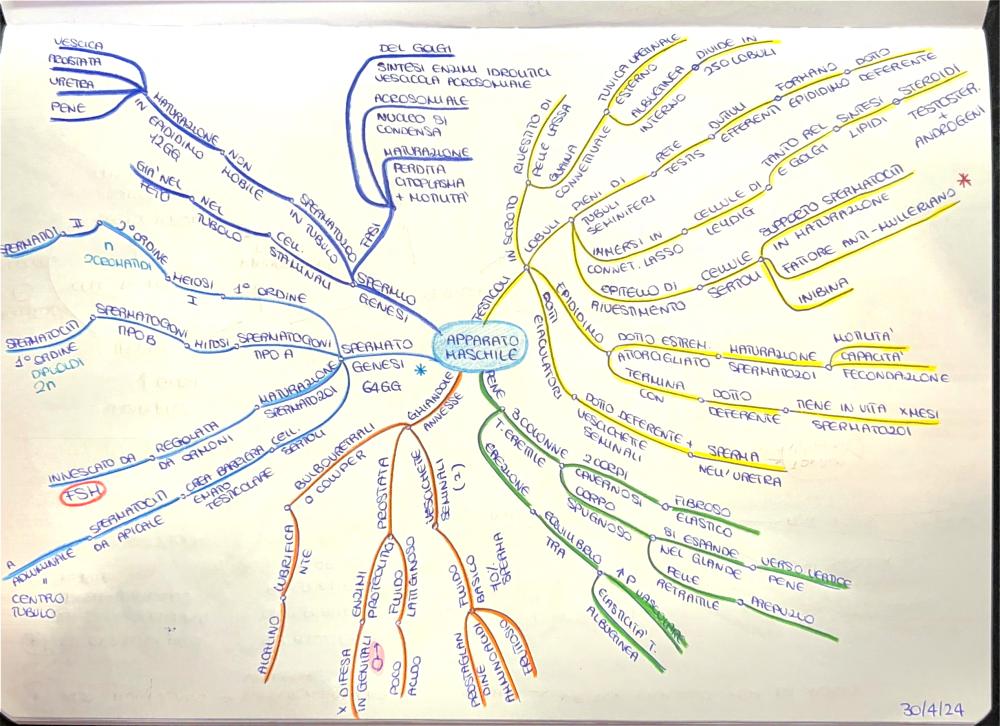 APPARATO
MASCHILE
TESTICOLI
IN SCROTO
RIVESTITO DI
PELLE LASSA
GUAINA
CONNETTIVALE
TUNICA VAGINALE
ESTERNO
ALBUGINEA
INTERNO
DIVIDE IN
250 LOBULI
LOBULI
PIENI DI
TUBULI
SEMINIFERI
RETE
TESTIS
DUTTULI
EFFERENTI
FORMANO
EPIDIDIMO
DOTTO
DEFERENTE
IMMERSI IN
CONNET. LASSO
CELLULE DI
LEYDIG
TANTO REL
E GOLGI
SINTESI
LIPIDI
STEROIDI
TESTOSTER.
+
ANDROGENI
EPITELIO DI
RIVESTIMENTO
CELLULE
SERTOLI
SUPPORTO SPERMATOCITI
IN MATURAZIONE
FATTORE ANTI-MULLERIANO
*
INIBINA
EPIDIDIMO
DOTTO ESTREM.
ATTORCIGLIATO
MATURAZIONE
SPERMATOZOI
MOTILITA'
CAPACITA'
FECONDAZIONE
TERMINA
CON
DOTTO
DEFERENTE
TIENE IN VITA X MESI
SPERMATOZOI
DOTTI
EIACULATORI
DOTTO DEFERENTE +
VESCICHETTE
SEMINALI
SPERMA
NELL'URETRA
PENE
3 COLONNE
T. ERETTILE
2 CORPI
CAVERNOSI
FIBROSO
ELASTICO
CORPO
SPUGNOSO
SI ESPANDE
NEL GLANDE
VERSO VERTICE
PENE
PELLE
RETRATTILE
PREPUZIO
EREZIONE
EQUILIBRIO
TRA
↑P VASCOLARE
ELASTICITA' T.
ALBUGINEA
GHIANDOLE
ANNESSE
VESCICHETTE
SEMINALI
(2)
FLUIDO
BASICO
70%
SPERMA
FRUTTOSIO
AMMINOACIDI
PROSTAGLAN
DINE
PROSTATA
FLUIDO
LATTIGINOSO
POCO
ACIDO
ENZIMI
PROTEOLITICI
X DIFESA
IN GENITALI ♂
BULBOURETRALI
O COWPER
LUBRIFICA
NTE
ALCALINO
SPERMATO
GENESI *
64GG
1° ORDINE
MEIOSI
I
2° ORDINE
n
2CROMATIDI
II
SPERMATIDI
SPERMATOGONI
TIPO A
MITOSI
SPERMATOGONI
TIPO B
SPERMATOCITI
1° ORDINE
DIPLOIDI
2n
MATURAZIONE
SPERMATOZOI
REGOLATA
DA ORMONI
INNESCATO DA
FSH
CELL.
SERTOLI
CREA BARRIERA
EMATO
TESTICOLARE
SPERMATOCITI
DA APICALE
A
ADLUMINALE
"
CENTRO
TUBULO
SPERMIO
GENESI
FASI
DEL GOLGI
SINTESI ENZIMI IDROLITICI
VESCICOLA ACROSOMIALE
ACROSOMIALE
NUCLEO SI
CONDENSA
MATURAZIONE
PERDITA
CITOPLASMA
+ MOTILITA'
SPERMATOZOO
IN TUBULO
NON
MOBILE
MATURAZIONE
IN EPIDIDIMO
12GG
VESCICA
PROSTATA
URETRA
PENE
CELL.
STAMINALI
NEL
TUBOLO
GIA' NEL
FETO
30/4/24